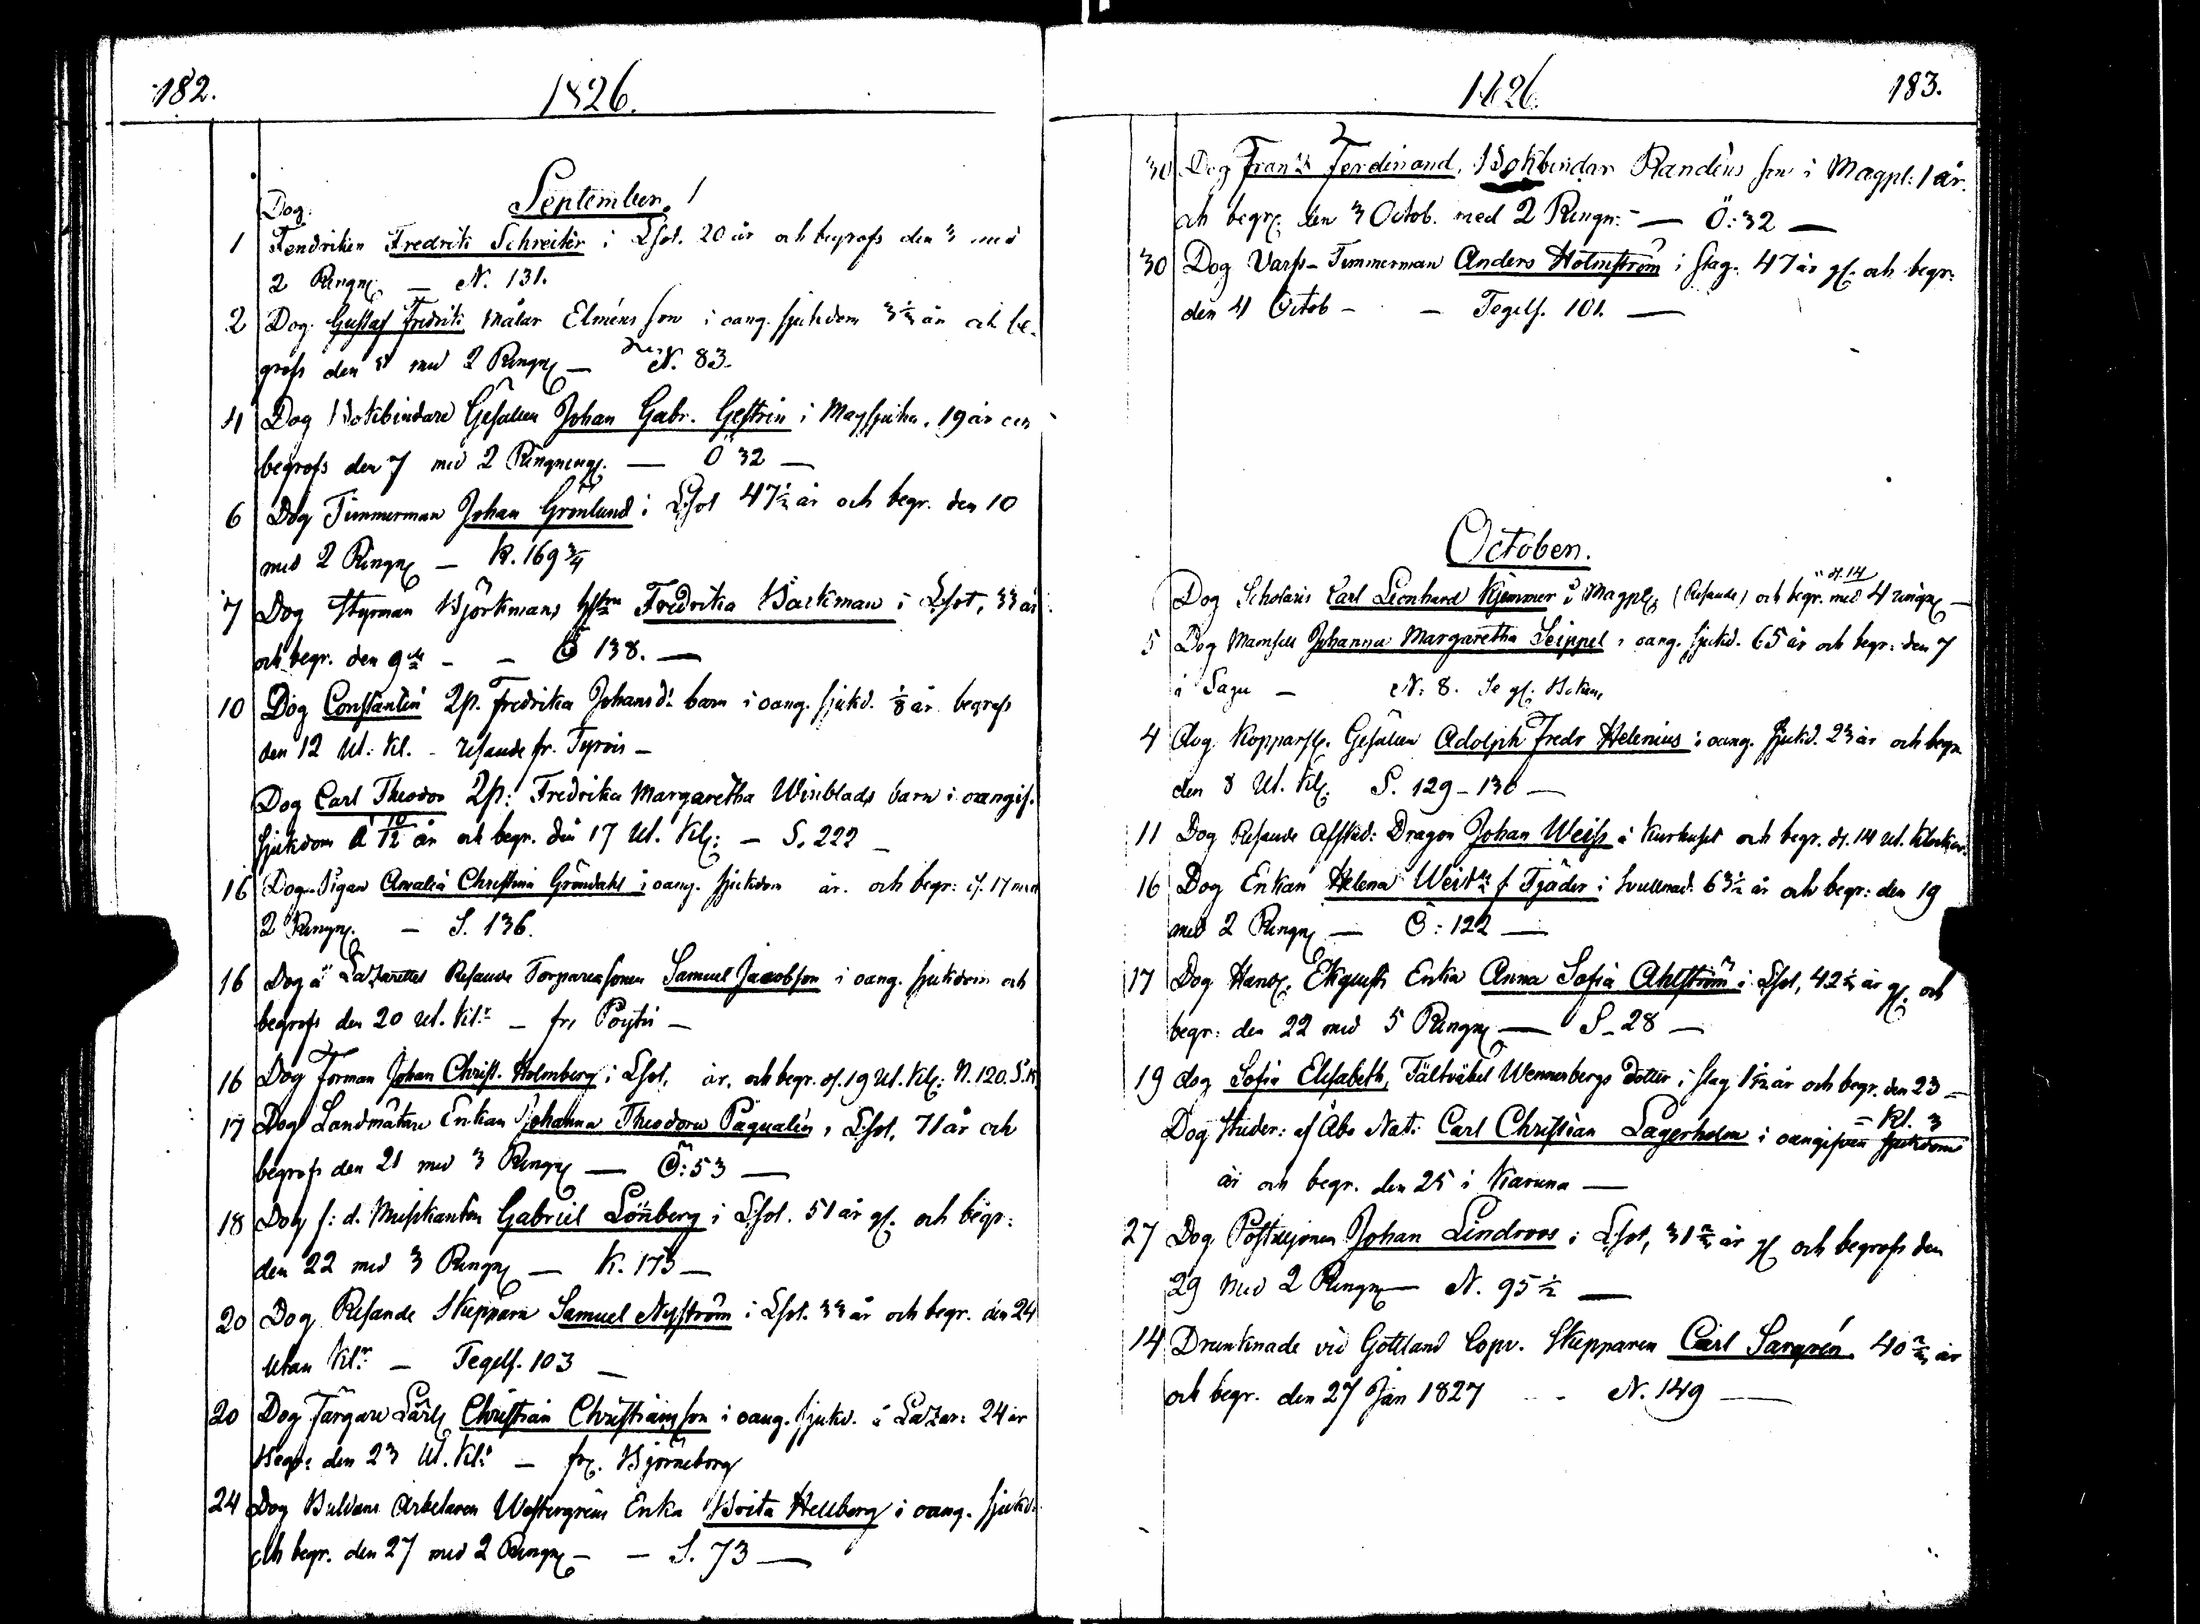 182.
1826.
September.
Dog.
1 Fendriken Fredrik Schreiter i Lsot. 20 år och begrofs den 3 med
2 Ringn: — N. 131.
2 Dog Gustaf Fredrik Målar Elméns son i oang. sjukdom 3 1/2 år och be-
grofs den med 2 Ringn: — N. 83.
4 Dog Bokbindare Gesällen Johan Gabr. Gestrin i Magsjuka, 19 år och
begrofs den 7 med 2 Ringningr. — Ö 32 —
6 Dog Timmerman Johan Grönlund i Lsot 47 1/2 år och begr. den 10
med 2 Ringn: — K. 169 3/4
7 Dog Styrman Björkmans hstru Fredrika Backman i Lsot, 33 år
och begr. den 9de — — Ö 138. —
10 Dog Constantin 2p. Fredrika Johansd: barn i oang. sjukd. 1/8 år begrofs
den 12 ut: kl. - resande fr. Tyrvis —
Dog Carl Theodor 2p: Fredrika Margaretha Winblads barn i oangif.
sjukdom à 10/12 år och begr. den 17 ut. Kl: — S. 222 —
16 Dog Pigan Amalia Christina Gröndahl i oang. sjukdom år. och begr: d. 17 med
2 Ringn: — S. 136.
16 Dog å Lazarettet Resande Torparesonen Samuel Jacobson i oang. sjukdom och
begrofs den 20 ut. Kl:r — fr. Pöytis —
16 Dog Forman Johan Christ. Holmberg i Lsot, år, och begr. d. 19 ut. Kl: N. 120. S.K
17 Dog Landmätare Enkan Johanna Theodora Paqualin i Lsot, 71 år och
begrofs den 21 med 3 Ringn: — Ö: 53 —
18 Dog f: d. Musikanten Gabriel Lönnberg i Lsot. 51 år gl. och begr:
den 22 med 3 Ringn: — K. 173 —
20 Dog Resande Skepparn Samuel Nyström i Lsot. 33 år och begr. den 24
utan Kl:r — Tegels. 103 —
20 Dog Färgare Lärl: Christian Christiansson i oang. sjukd. å Lazar: 24 år
Begr: den 23 ut. Kl:r — fr. Björneborg
24 Dog Arbetaren Westergréns Enka Brita Hellberg i oang. sjukd:
och begr. den 27 med 2 Ringn: — — S. 73 —
1826.
183.
30 Dog Frans Ferdinand, Bokbindar Randéns son i Magpl: 1 år.
och begr: den 3 Octob. med 2 Ringn: — Ö: 32 —
30 Dog Varfs-Timmerman Anders Holmström i slag. 47 år gl: och begr:
den 4 Octob — — Tegels. 101. —
October.
Dog Scholaris Carl Leonhard Kjemmer i Magpl: (Resande) och begr. d. 14 med 4 ringn: —
5 Dog Mamsell Johanna Margaretha Seippel i oang. sjukd. 65 år och begr: den 7
i Sagu — N: 8.
4 Dog Kopparsl. Gesällen Adolph Fredr Helenius i oang. sjukd. 23 år och begr
den 8 ut. Kl: S. 129-130 —
11 Dog Resande Afsked: Dragon Johan Weiss å Kurhuset och begr. d. 14 ut. klockor.
16 Dog Enkan Helena Weid f. Tjäder i svullnad. 63 1/2 år och begr: den 19
med 2 Ringn: — Ö: 122 —
17 Dog Handl. Ekqvists Enka Anna Sofia Ahlström i Lsot, 42 1/2 år gl. och
begr: den 22 med 5 Ringn: — S. 28 —
19 dog Sofia Elisabeth, Fältväbel Wennerbergs dotter i slag 1 1/2 år och begr. den 23 —
= Kl. 3
Dog Studer: af Åbo Nat: Carl Christian Lagerholm i oangifven sjukdom
år och begr. den 25 i Karuna —
27 Dog Postiljonen Johan Lindroos i Lsot, 31 år gl och begrofs den
29 med 2 Ringn: — N. 95 1/2 —
14 Drunknade vid Gottland Copv. Skepparen Carl Sargren. 40 år
och begr. den 27 Jan 1827 — N. 149 —